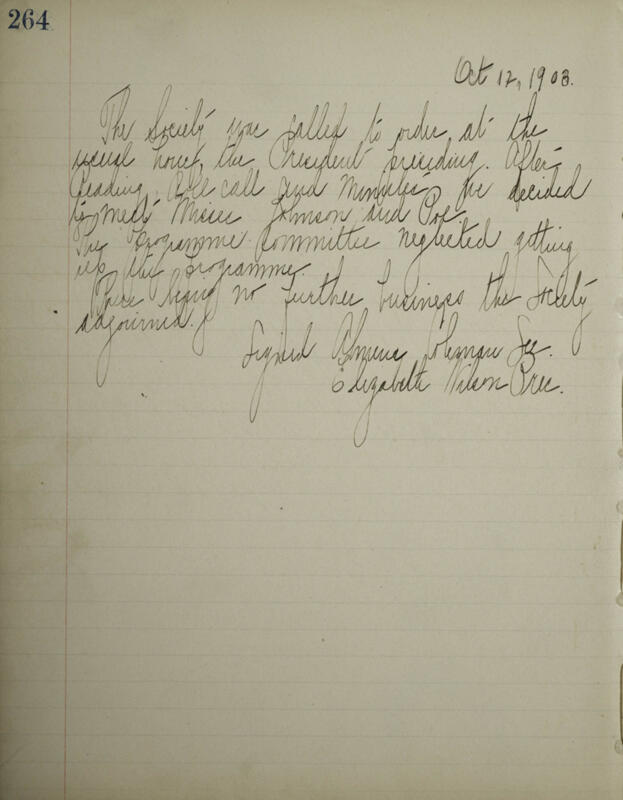 264
Oct 12, 1903.
The Society was called to order at the
usual hour, the President presiding. After
reading Roll call and Minutes we decided
to meet Misses Johnson and Poe.
The Programme committee neglected getting
up the programme.
There being no further business the Society
adjourned.
Signed Almena Coleman Sec.
Elizabeth Wilson Pres.